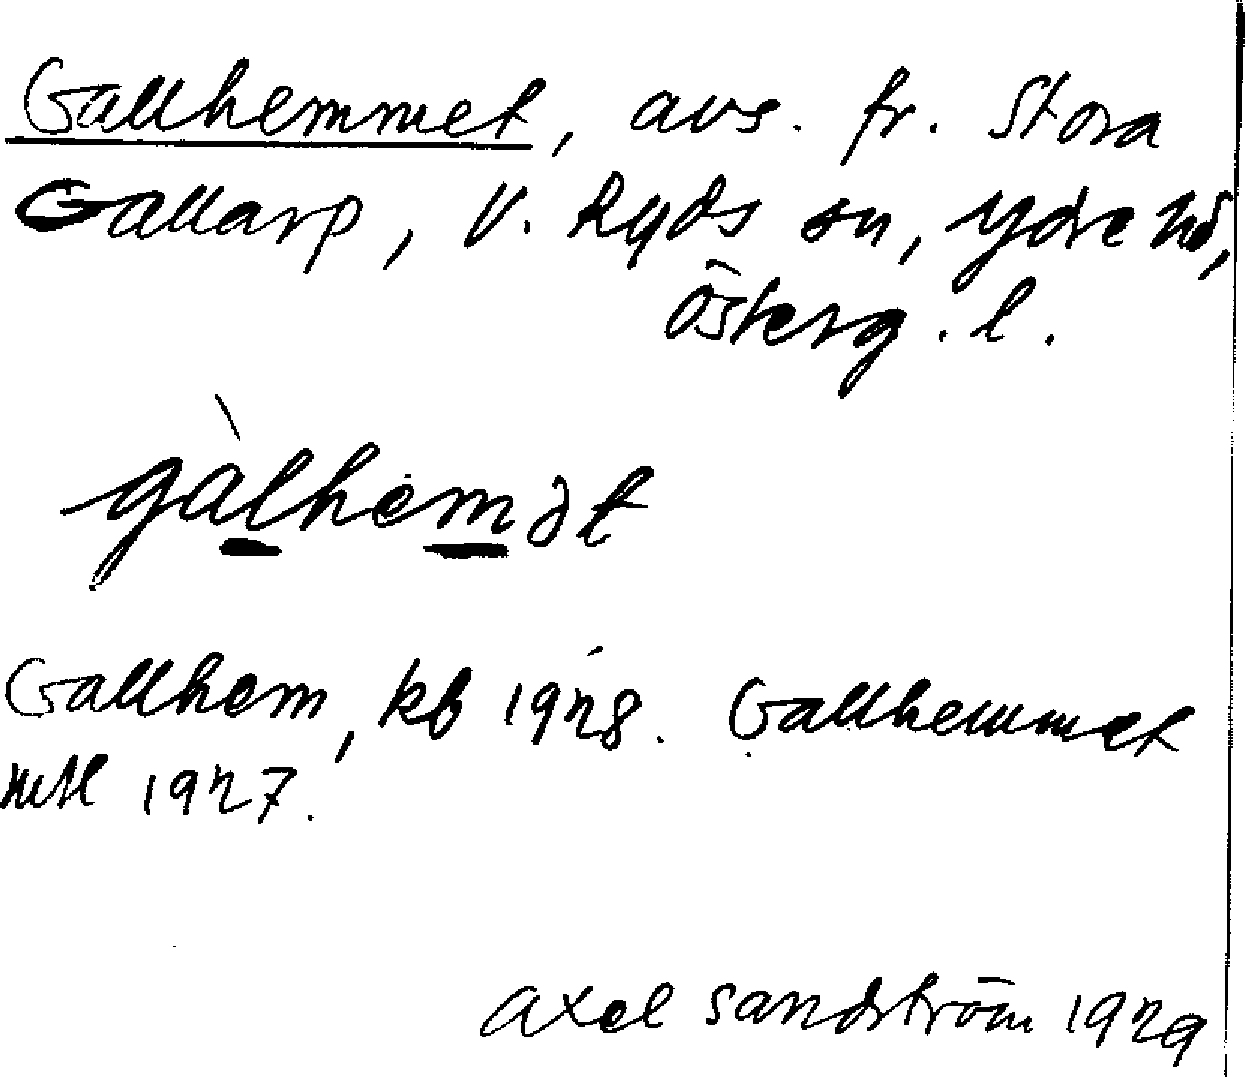 Gallhemmet, avs. fr. Stora
Gallarp, V. Ryds sn, Ydre hd,
Österg. l.
gàlhemət
Gallhem, kb 1928. Gallhemmet
mtl 1927.
Axel Sandström 1929